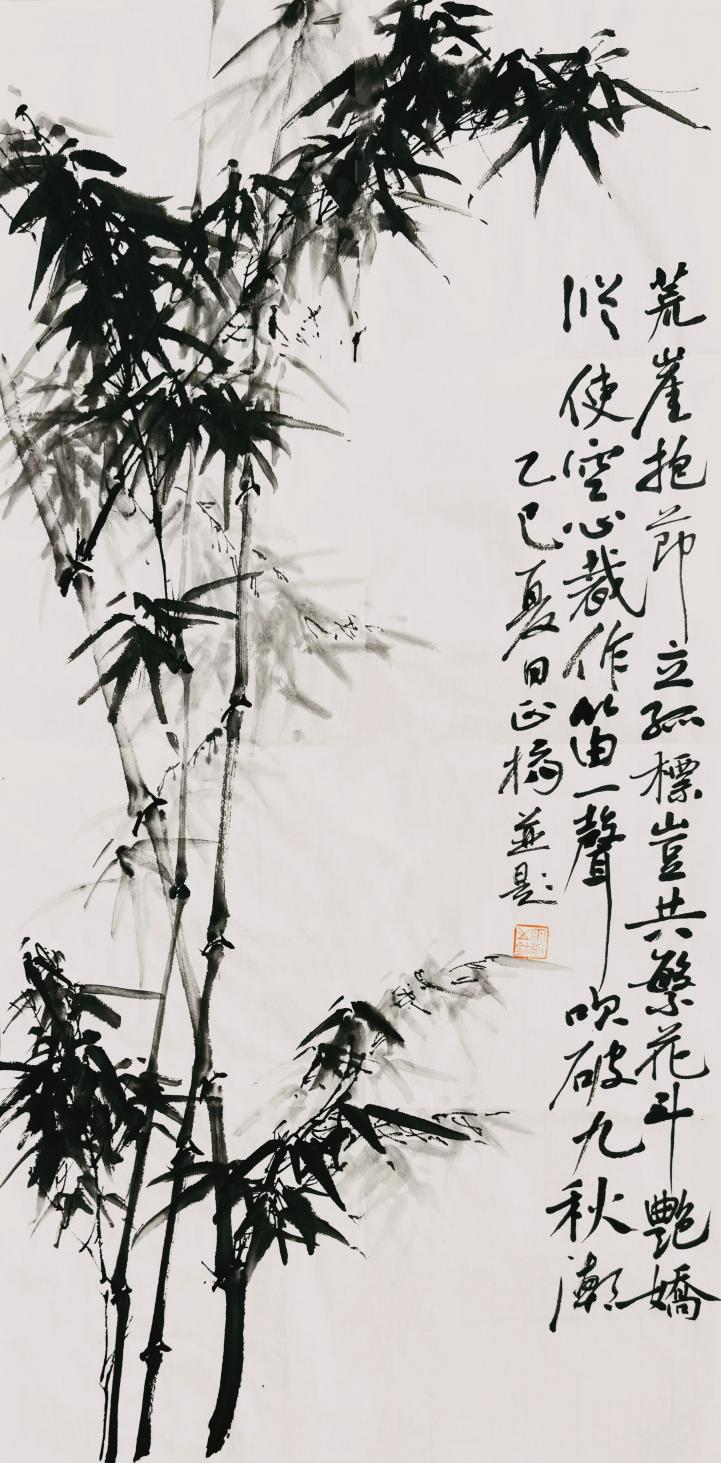 荒崖抱節立孤標豈共繁花斗艷嬌
縱使空心裁作笛一聲吹破九秋潮
乙巳夏日正橋並題